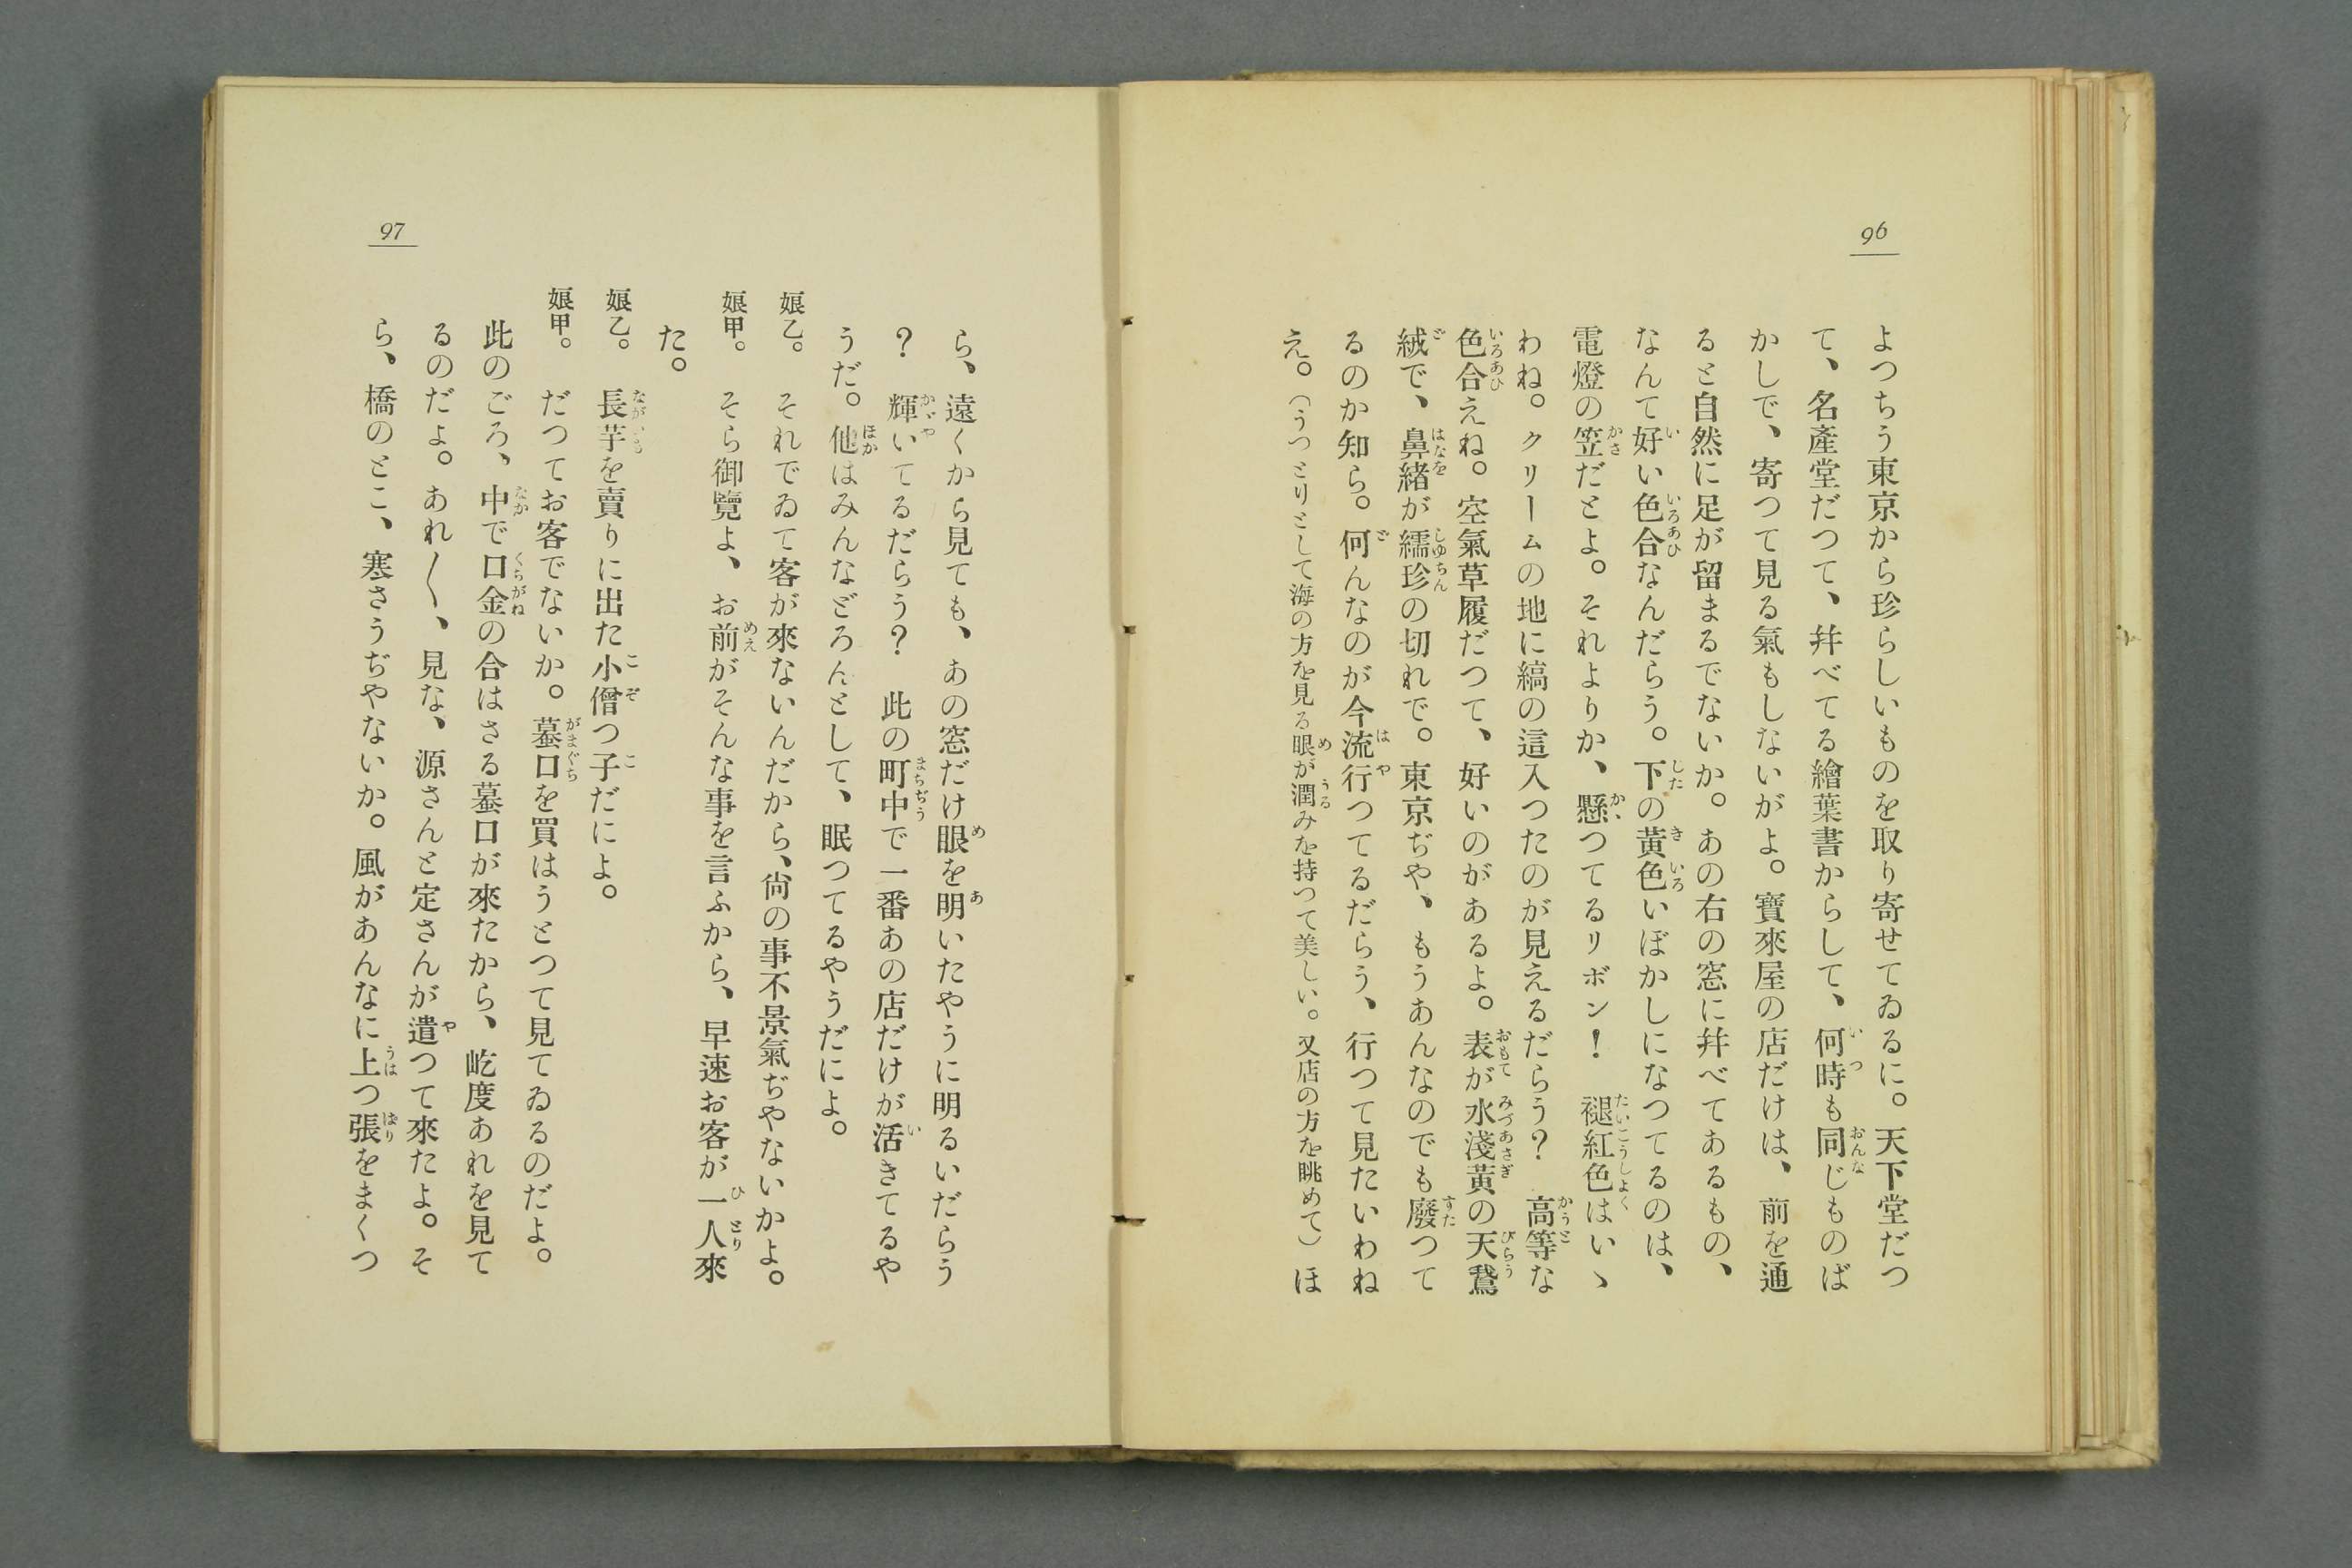 96
よつちう東京から珍らしいものを取り寄せてゐるに。天下堂だつ
て、名產堂だつて、幷べてる繪葉書からして、何時も同じものば
かしで、寄つて見る氣もしないがよ。寶來屋の店だけは、前を通
ると自然に足が留まるでないか。あの右の窓に幷べてあるもの、
なんて好い色合なんだらう。下の黄色いぼかしになつてるのは、
電燈の笠だとよ。それよりか、懸つてるリボン！　褪紅色はいゝ
わね。クリームの地に縞の這入つたのが見えるだらう？　高等な
色合えね。空氣草履だつて、好いのがあるよ。表が水淺黄の天鵞
絨で、鼻緒が繻珍の切れで。東京ぢや、もうあんなのでも廢つて
るのか知ら。何んなのが今流行つてるだらう、行つて見たいわね
え。（うつとりとして海の方を見る眼が潤みを持つて美しい。又店の方を眺めて）ほ
97
ら、遠くから見ても、あの窓だけ眼を明いたやうに明るいだらう
？　輝いてるだらう？　此の町中で一番あの店だけが活きてるや
うだ。他はみんなどろんとして、眠つてるやうだによ。
娘乙。　それでゐて客が來ないんだから、尙の事不景氣ぢやないかよ。
娘甲。　そら御覽よ、お前がそんな事を言ふから、早速お客が一人來
た。
娘乙。　長芋を賣りに出た小僧つ子だによ。
娘甲。　だつてお客でないか。蟇口を買はうとつて見てゐるのだよ。
此のごろ、中で口金の合はさる蟇口が來たから、屹度あれを見て
るのだよ。あれ〱、見な、源さんと定さんが遣つて來たよ。そ
ら、橋のとこ、寒さうぢやないか。風があんなに上つ張をまくつ